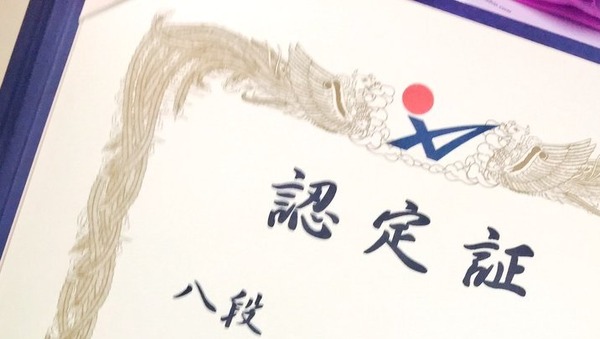 認定証
八段